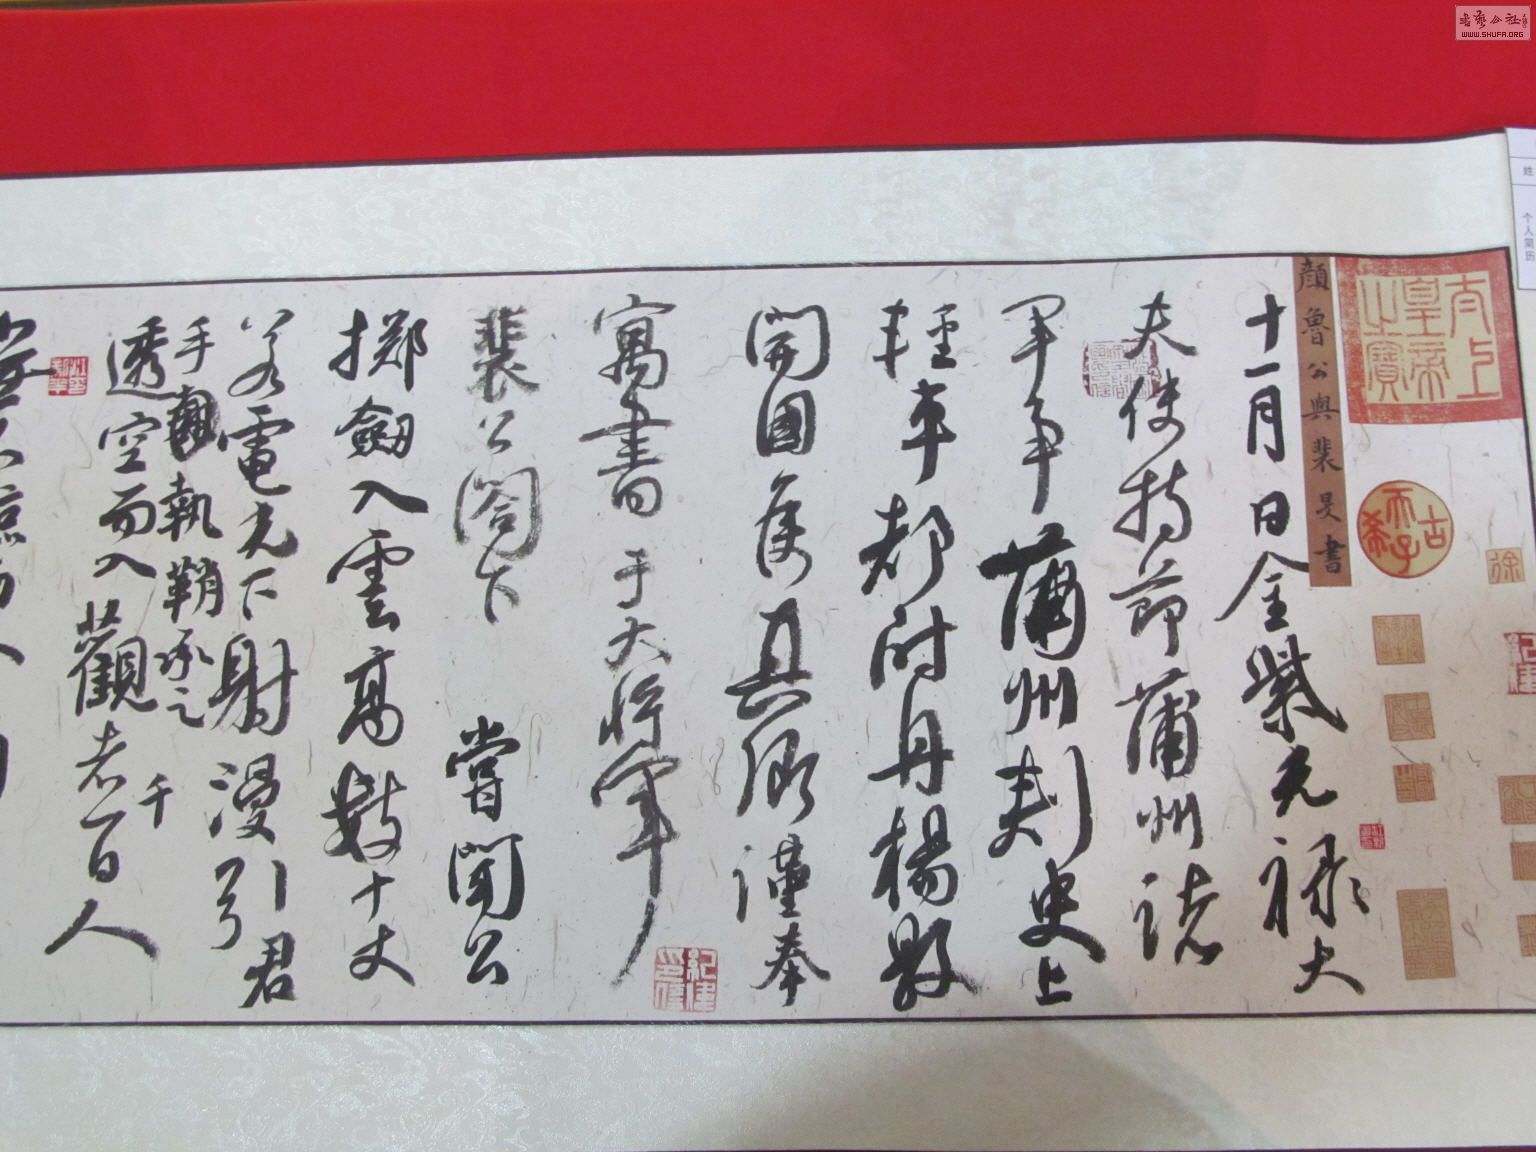 太上皇帝之寶
古希天子
顏魯公與裴旻書
十一月日金紫光禄大
夫使持節蒲州諸
軍事蒲州刺史上
輕車都尉丹楊縣
開國侯真卿謹奉
寓書于大將軍
裴公閣下 嘗聞公
擲劒入雲高數十丈
若電光下射漫引君
手執鞘承之
透空而入觀者千百人
紀律
姓
个人简历
書藝公社
WWW.SHUFA.ORG